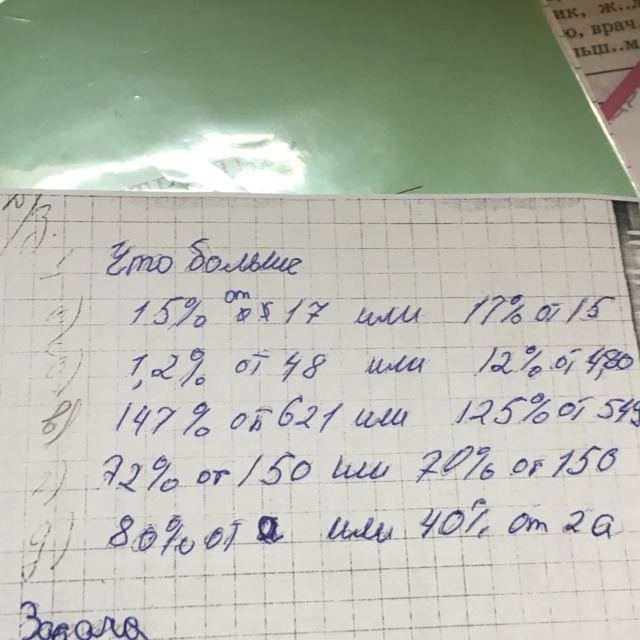 ик, ж..
ю, врач.
льш..м
Что больше
а) 15% от 17 или 17% от 15
б) 1,2% от 48 или 12% от 4,80
в) 147% от 621 или 125% от 549
г) 72% от 150 или 70% от 150
д) 80% от а или 40% от 2а
Задача